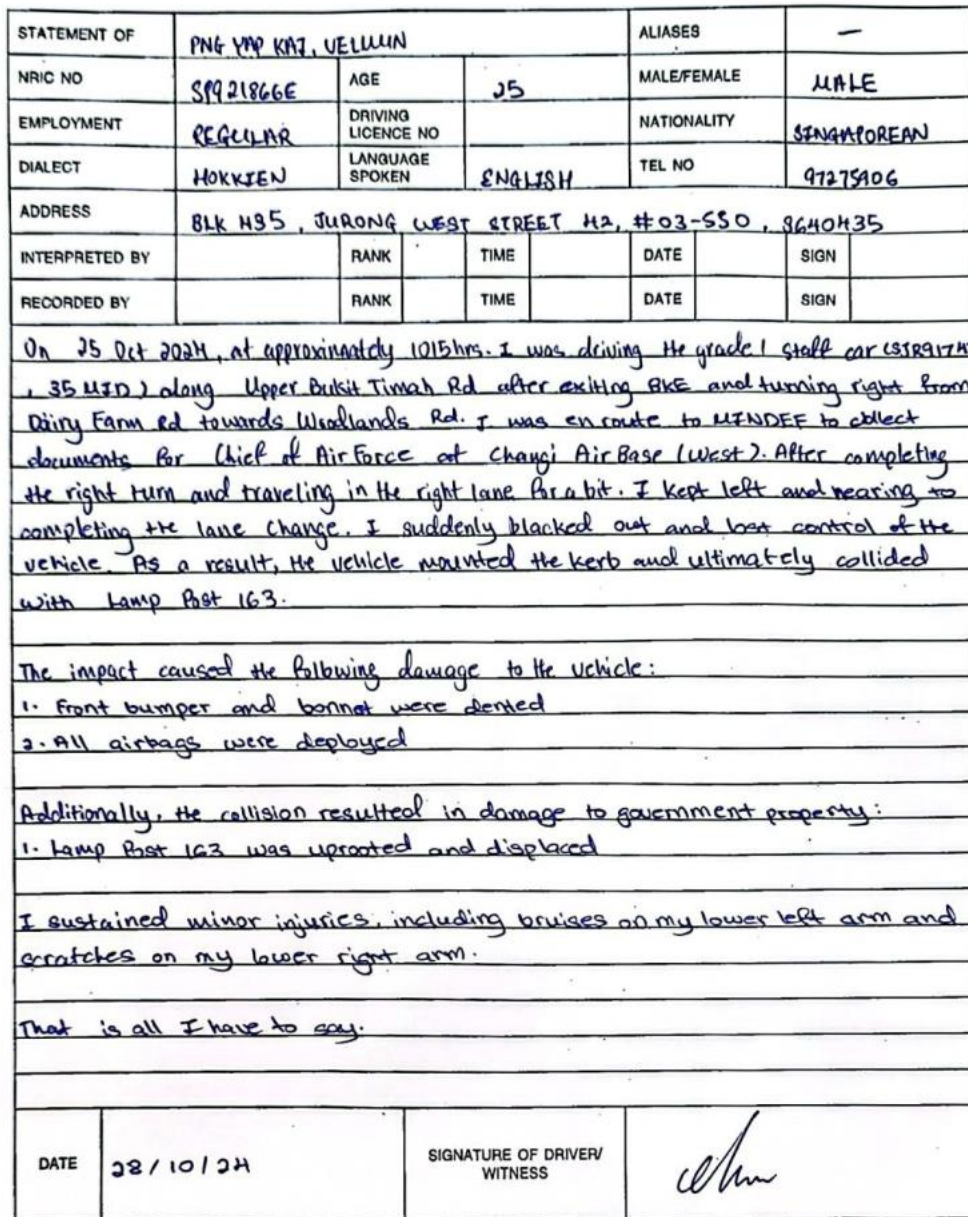 STATEMENT OF PNG YAP KAI, VELWIN ALIASES —
NRIC NO S9921866E AGE 25 MALE/FEMALE MALE
EMPLOYMENT REGULAR DRIVING LICENCE NO NATIONALITY SINGAPOREAN
DIALECT HOKKIEN LANGUAGE SPOKEN ENGLISH TEL NO 97275906
ADDRESS BLK 435, JURONG WEST STREET 42, #03-550, S640435
INTERPRETED BY RANK TIME DATE SIGN
RECORDED BY RANK TIME DATE SIGN
On 25 Oct 2024, at approximately 1015hrs. I was driving the grade 1 staff car (SJR917H
, 35 MID) along Upper Bukit Timah Rd after exiting BKE and turning right from
Dairy Farm Rd towards Woodlands Rd. I was en route to MINDEF to collect
documents for Chief of Air Force at Changi Air Base (West). After completing
the right turn and traveling in the right lane for a bit. I kept left and nearing to
completing the lane change. I suddenly blacked out and lost control of the
vehicle. As a result, the vehicle mounted the kerb and ultimately collided
with Lamp Post 163.
The impact caused the following damage to the vehicle:
1. Front bumper and bonnet were dented
2. All airbags were deployed
Additionally, the collision resulted in damage to government property:
1. Lamp Post 163 was uprooted and displaced
I sustained minor injuries, including bruises on my lower left arm and
scratches on my lower right arm.
That is all I have to say.
DATE 28/10/24 SIGNATURE OF DRIVER/ WITNESS